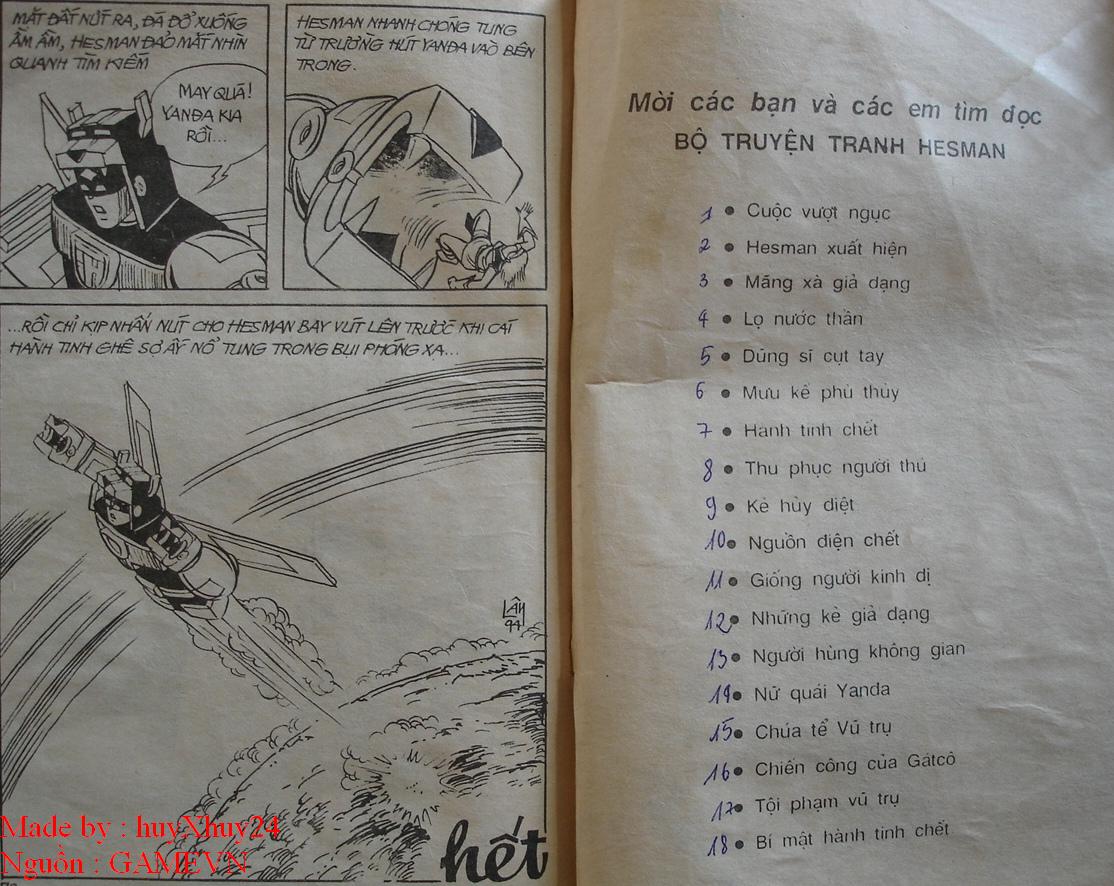 MẶT ĐẤT NỨT RA, ĐÁ ĐỔ XUỐNG
ẦM ẦM, HESMAN ĐẢO MẮT NHÌN
QUANH TÌM KIẾM
MAY QUÁ!
YANĐA KIA
RỒI...
HESMAN NHANH CHÓNG TUNG
TỪ TRƯỜNG HÚT YANĐA VÀO BÊN
TRONG.
...RỒI CHỈ KỊP NHẤN NÚT CHO HESMAN BAY VÚT LÊN TRƯỚC KHI CÁI
HÀNH TINH GHÊ SỢ ẤY NỔ TUNG TRONG BỤI PHÓNG XẠ...
LÂN
94
hết
Made by : huyXhuy24
Nguồn : GAMEVN
Mời các bạn và các em tìm đọc
BỘ TRUYỆN TRANH HESMAN
1 • Cuộc vượt ngục
2 • Hesman xuất hiện
3 • Mãng xà giả dạng
4 • Lọ nước thần
5 • Dũng sĩ cụt tay
6 • Mưu kế phù thủy
7 • Hành tinh chết
8 • Thu phục người thú
9 • Kẻ hủy diệt
10 • Nguồn điện chết
11 • Giống người kinh dị
12 • Những kẻ giả dạng
13 • Người hùng không gian
14 • Nữ quái Yanda
15 • Chúa tể Vũ trụ
16 • Chiến công của Gátcô
17 • Tội phạm vũ trụ
18 • Bí mật hành tinh chết